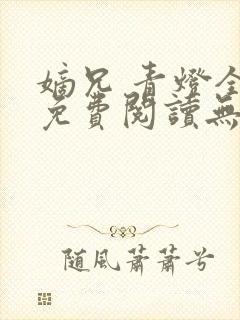 嫡兄 青燈全
免費閱讀無
随風蕭蕭兮